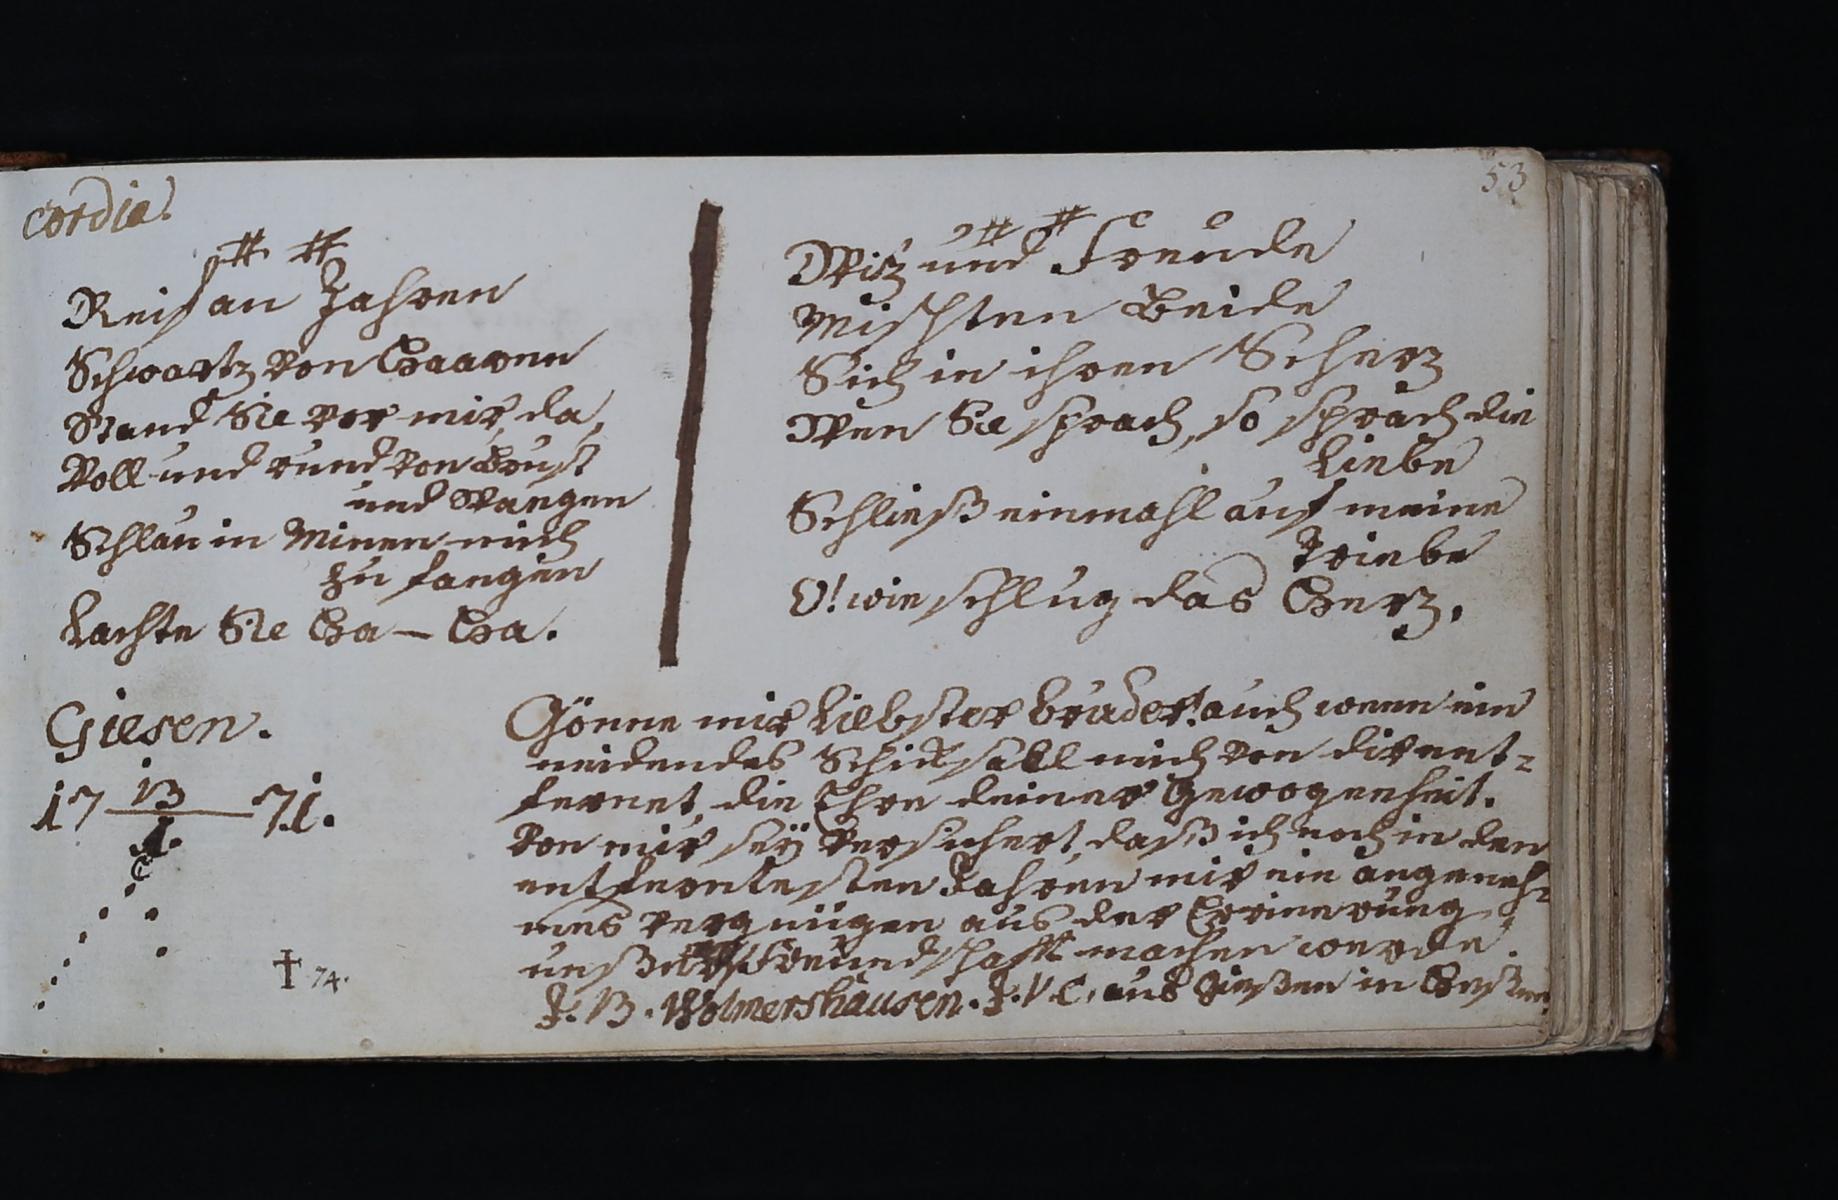 53
cordia!
Reif an Jahren
Schwartz von Haaren
Stand Sie vor mir da,
Voll und rund von Brust
und Wangen
Schlau in Minen mich
zu fangen
Lachte Sie Ha — Ha.
Witz und Freude
Mischten Beide
Sich in ihren Scherz
Wen Sie sprach, so sprach die
Liebe
Schließ einmahl auf meine
Triebe
O! wie schlug das Herz.
Giesen.
17 13/1. 71.
Gönne mir Liebster Bruder! auch wenn ein
neidendes Schicksall mich von dir ent-
fernet, die Ehre deiner Gewogenheit.
Von mir seÿ versichert, daß ich noch in den
entferntesten Jahren mir ein angeneh-
mes vergnügen aus der Erinnerung
unßerer Freundschafft machen werde.
J. B. Wolmershausen. J. V. C. aus Gießen in Heßen
† 74.